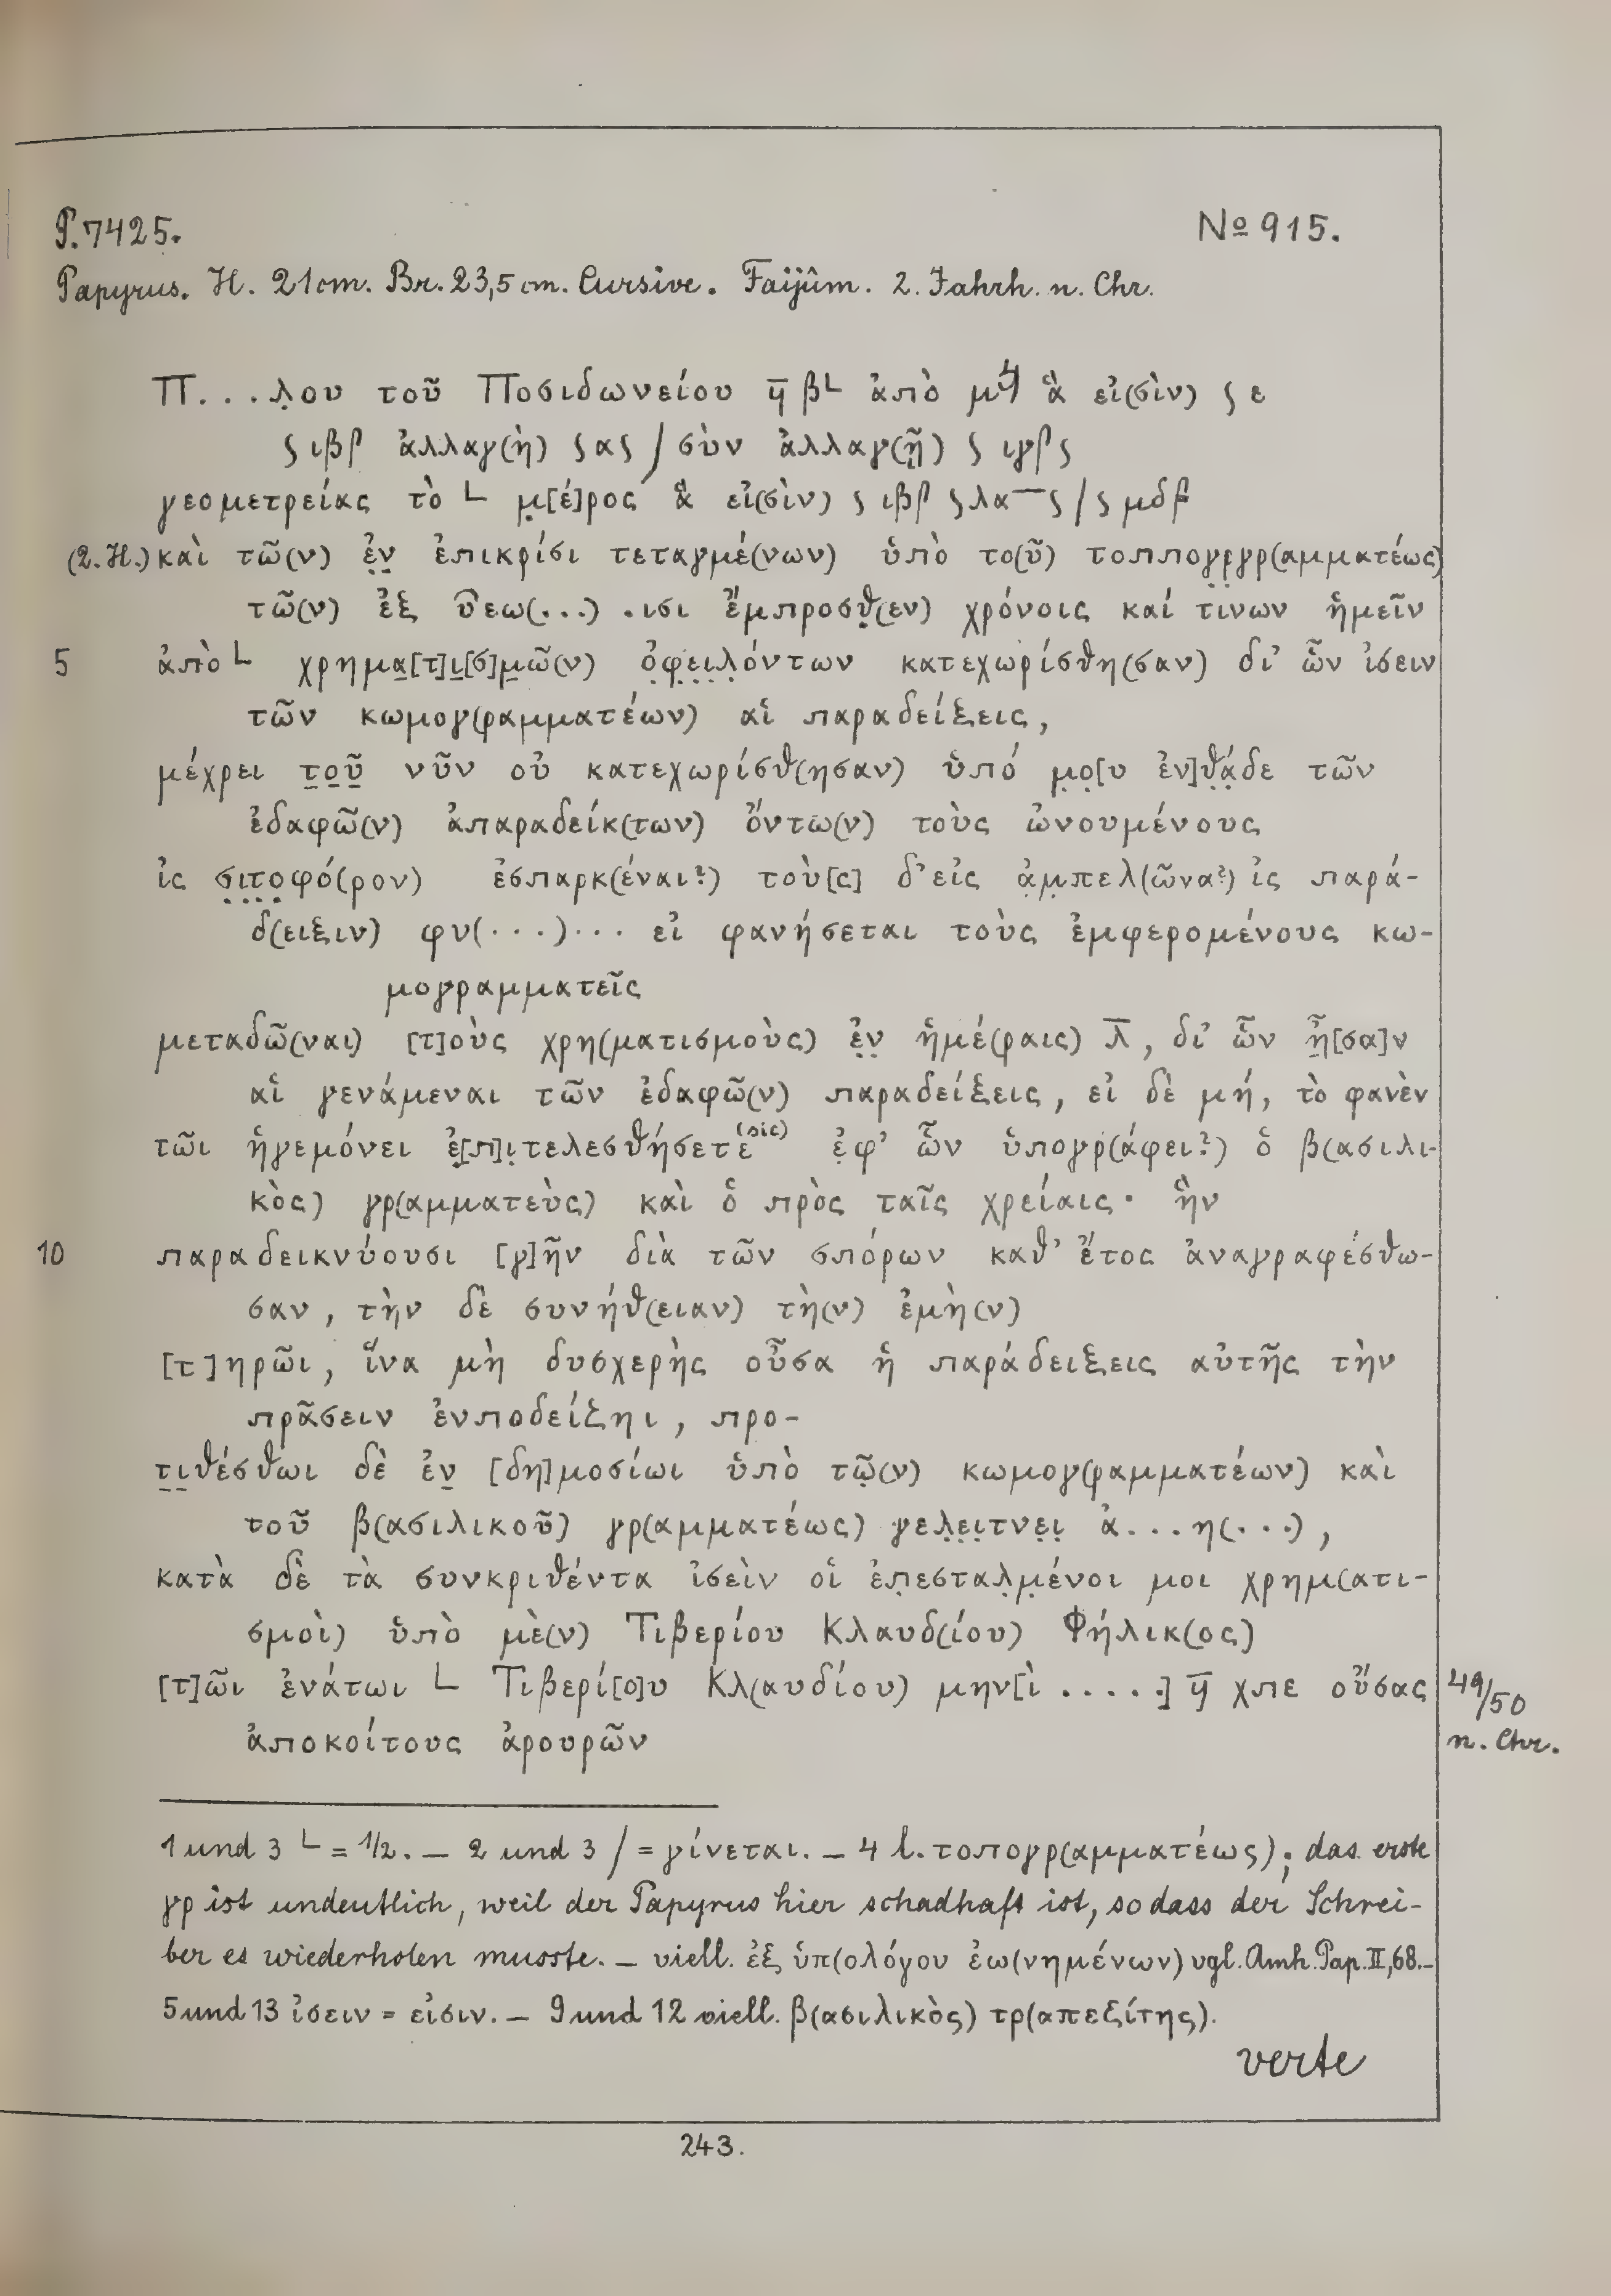 P. 7425. No 915.
Papyrus. H. 21 cm. Br. 23,5 cm. Cursive. Faijûm. 2. Jahrh. n. Chr.
Π...λ̣ου τοῦ Ποσιδωνείου βL ἀπὸ ἃ εἰ(σὶν) ϛ ε
ἀλλαγ(ὴ) ϛαϛ / σὺν ἀλλαγ(ῇ)
γεομετρείας τὸ L μ̣[έ]ρος ἃ εἰ(σὶν)
(2. H.) καὶ τῶ(ν) ἐ̣ν̣ ἐπικρίσι τεταγμέ(νων) ὑπὸ το(ῦ) τοππογ̣ρ̣γρ(αμματέως)
τῶ(ν) ἐξ υ̅εω(...) .ισι ἔμπροσθ̣(εν) χρόνοις καί τινων ἡμεῖν
5 ἀπὸ L χρημα̣[τ]ι̣[σ]μ̣ῶ(ν) ὀ̣φ̣ε̣ι̣λ̣όντων κατεχωρίσθη(σαν) δι’ ὧν ἰσειν
τῶν κωμογ(ραμματέων) αἱ παραδείξεις,
μέχρει τ̣ο̣ῦ̣ νῦν οὐ κατεχωρίσθ(ησαν) ὑπό μ̣ο̣[υ ἐν]θ̣ά̣δε τῶν
ἐδαφῶ(ν) ἀπαραδείκ(των) ὄντω(ν) τοὺς ὠνουμένους
ἰς σ̣ι̣τ̣ο̣φό(ρον) ἐσπαρκ(έναι?) τοὺ[ς] δ’ εἰς ἀ̣μ̣πελ(ῶνα?) ἰς παρά-
δ(ειξιν) φυ(...)... εἰ φανήσεται τοὺς ἐμφερομένους κω-
μογραμματεῖς
μεταδῶ(ναι) [τ]οὺς χρη(ματισμοὺς) ἐ̣ν̣ ἡμέ(ραις) λ̅, δι’ ὧν ἦ̣[σα]ν
αἱ γενάμεναι τῶν ἐδαφῶ(ν) παραδείξεις, εἰ δὲ μή, τὸ φανὲν
τῶι ἡγεμόνει ἐ̣[π]ι̣τελεσθήσετε̣ (sic) ἐ̣φ’ ὧν ὑπογρ(άφει?) ὁ β(ασιλι-
κὸς) γρ(αμματεὺς) καὶ ὁ πρὸς ταῖς χρείαις· ἣν
10 παραδεικνύουσι [γ]ῆν διὰ τῶν σπόρων καθ’ ἔτος ἀναγραφέσθω-
σαν, τὴν δὲ συνήθ(ειαν) τὴ(ν) ἐμὴ(ν)
[τ]ηρῶι, ἵνα μὴ δυσχερὴς οὖσα ἡ παράδειξεις αὐτῆς τὴν
πρᾶσειν ἐνποδείξηι, προ-
τ̣ι̣θέσθωι δὲ ἐν̣ [δη]μοσίωι ὑπὸ τῶ̣(ν) κωμογ(ραμματέων) καὶ
τοῦ β(ασιλικοῦ) γρ(αμματέως) γελ̣ε̣ι̣τνε̣ι̣ ἀ...η(...),
κατὰ δὲ τὰ συνκριθέντα ἰσεὶν οἱ ἐπ̣εσταλ̣μ̣ένοι μοι χρημ(ατι-
σμοὶ) ὑπὸ μὲ(ν) Τιβερίου Κλαυδ(ίου) Φήλικ(ος)
[τ]ῶι ἐνάτωι L Τιβερί[ο]υ Κλ(αυδίου) μην[ὶ .....] χπε οὔσας 49/50
ἀποκοίτους ἀρουρῶν n. Chr.
1 und 3 L = 1/2. – 2 und 3 / = γίνεται. – 4 l. τοπογρ(αμματέως); das erste
γρ ist undeutlich, weil der Papyrus hier schadhaft ist, so dass der Schrei-
ber es wiederholen musste. – viell. ἐξ ὑπ(ολόγου ἐω(νημένων) vgl. Amh. Pap. II, 68. –
5 und 13 ἰσειν = εἰσιν. – 9 und 12 viell. β(ασιλικὸς) τρ(απεξίτης).
verte
243.